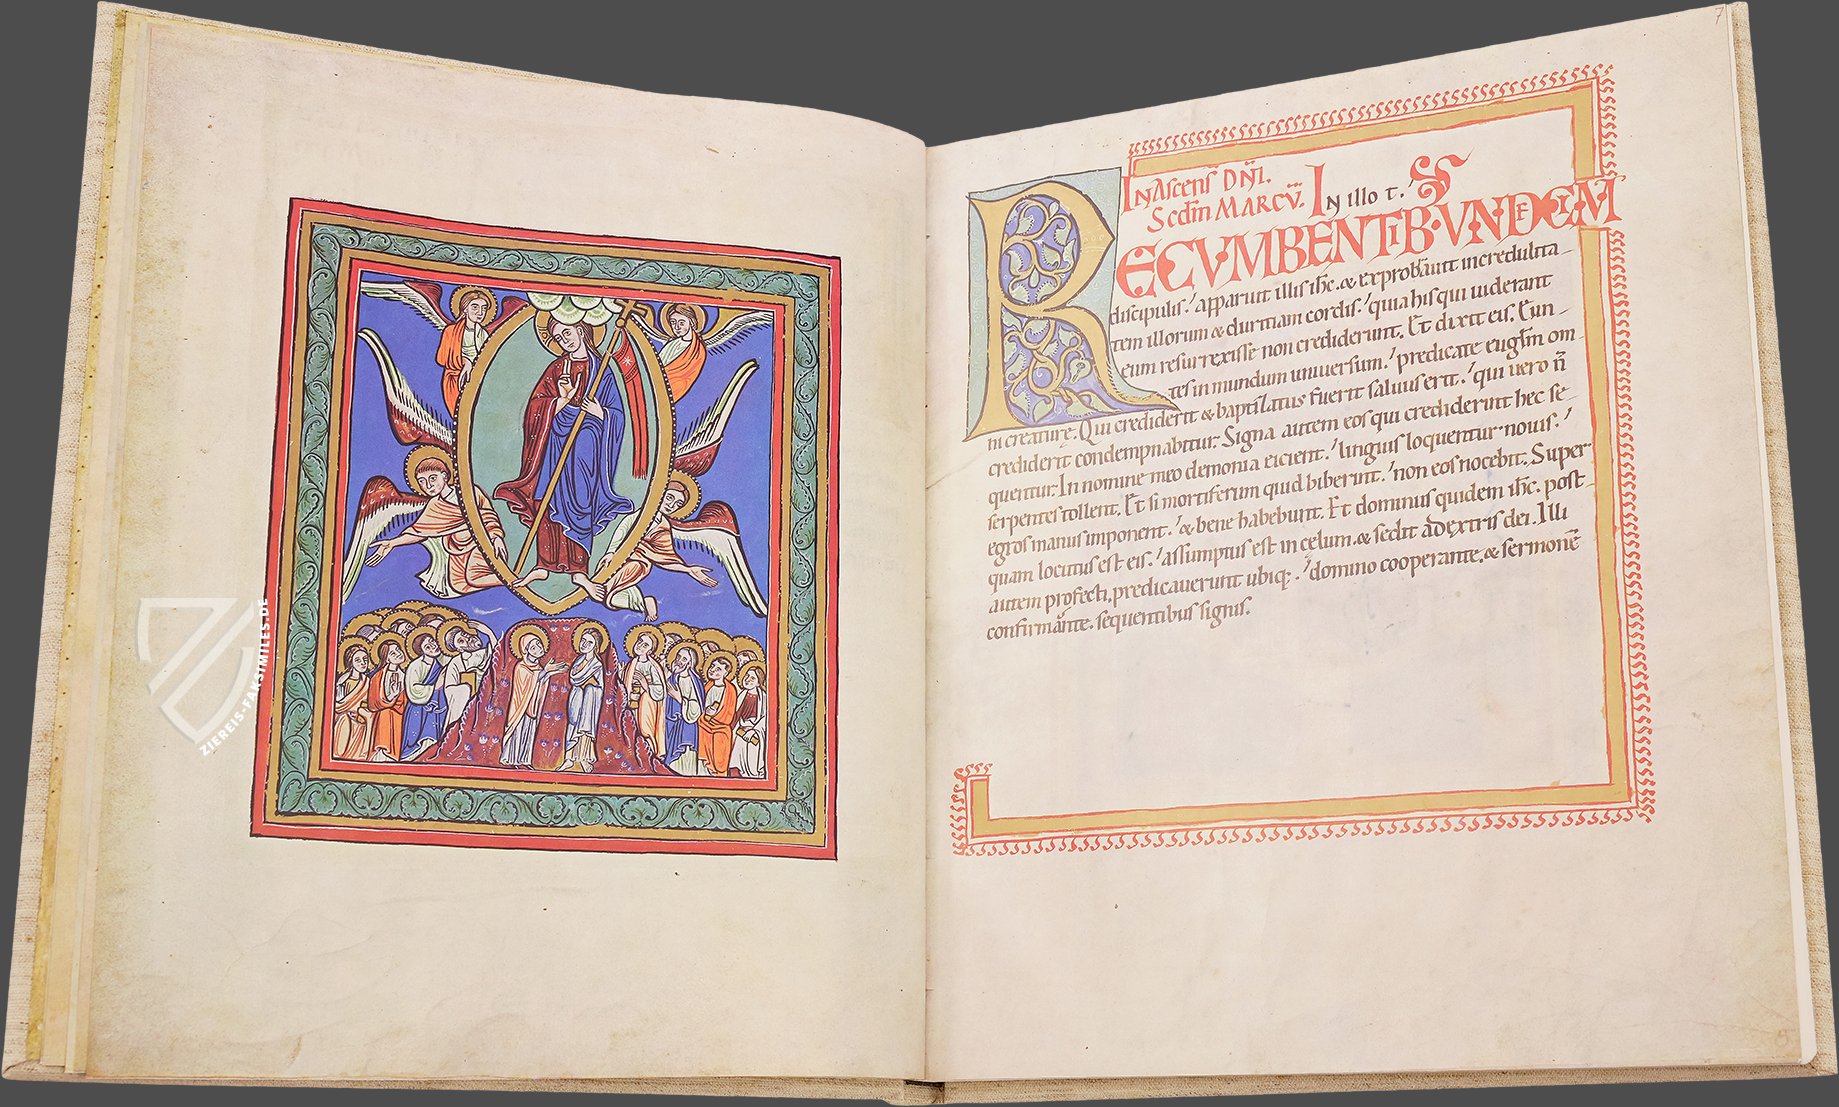 ZIEREIS-FAKSIMILES.DE
7
IN Ascens̄ DN̄I.
Scd̄m MARCV̄. IN illo t.
RECVMBENTIB· VNDECIM
discipulis. apparuit illis ih̄c. & exprobrauit incredulita-
tem illorum & duritiam cordis. quia his qui uiderant
eum resurrexisse non crediderunt. Et dixit eis. Eun-
tes in mundum uniuersum. predicate eugl̄m om-
ni creaturę. Qui crediderit & baptizatus fuerit saluus erit. qui uero n̄
crediderit condempnabitur. Signa autem eos qui crediderint hec se-
quentur. In nomine meo demonia eicient. linguis loquentur nouis.
serpentes tollent. Et si mortiferum quid biberint. non eos nocebit. Super
egros manus imponent. & bene habebunt. Et dominus quidem ih̄c. post-
quam locutus est eis. assumptus est in cęlum. & sedit a dextris dei. Illi
autem profecti, predicauerunt ubiq;. domino cooperante. & sermonē
confirmante. sequentibus signis.